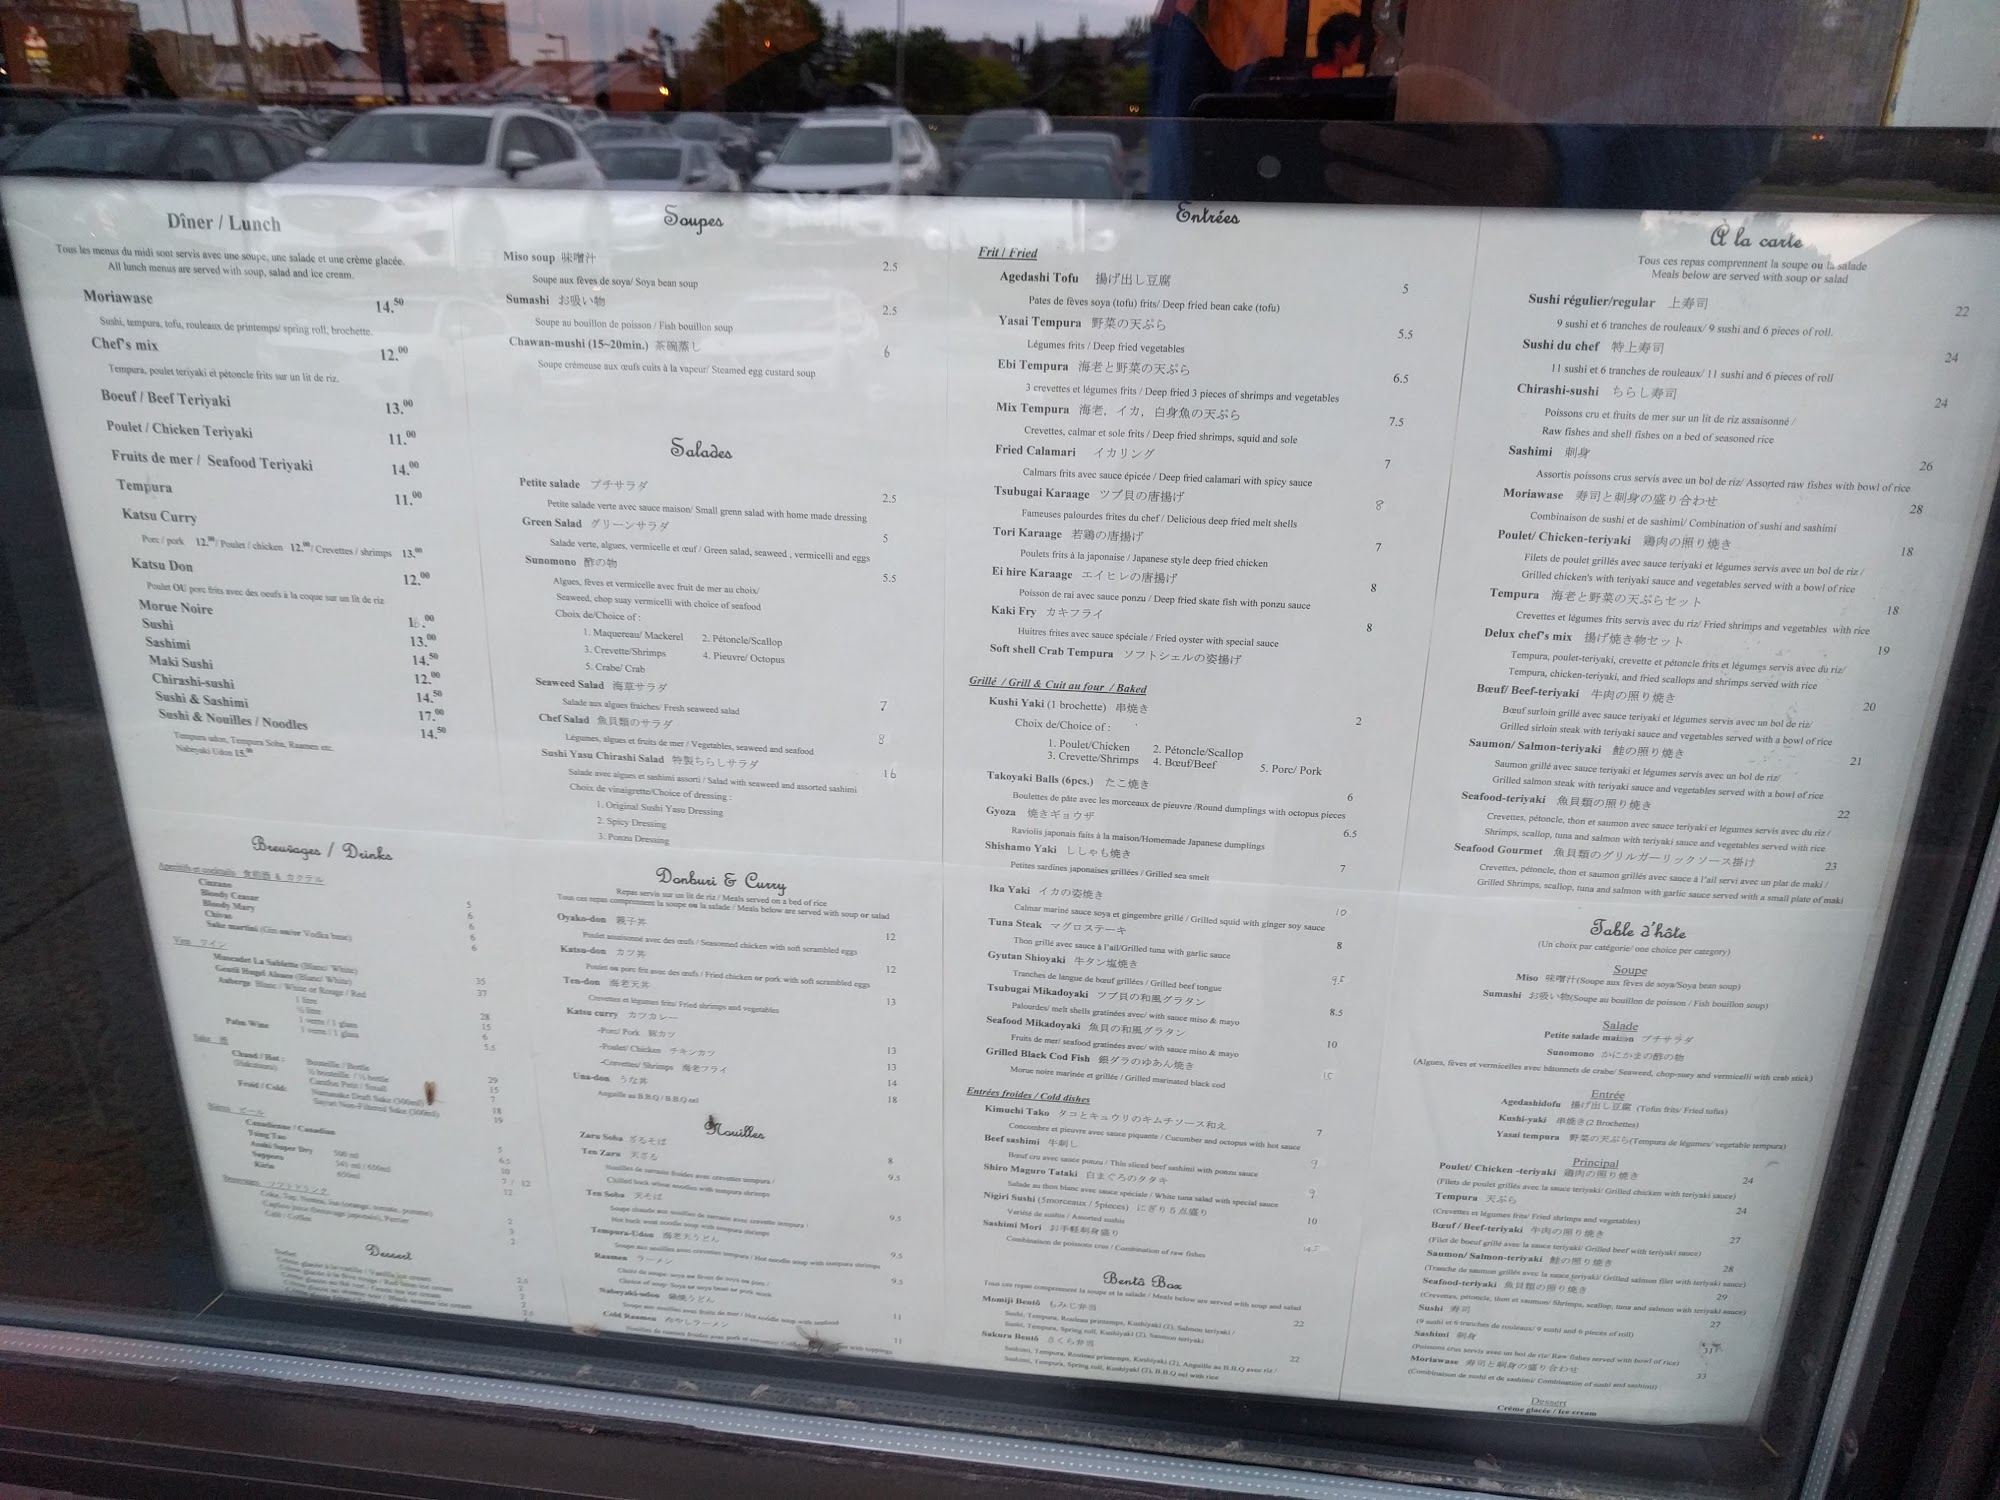 Dîner / Lunch
Tous les menus du midi sont servis avec une soupe, une salade et une crème glacée.
All lunch menus are served with soup, salad and ice cream.
Moriawase 14.50
Sushi, tempura, tofu, rouleaux de printemps/ spring roll, brochette.
Chef's mix 12.00
Tempura, poulet teriyaki et pétoncle frits sur un lit de riz.
Boeuf / Beef Teriyaki 13.00
Poulet / Chicken Teriyaki 11.00
Fruits de mer / Seafood Teriyaki 14.00
Tempura 11.00
Katsu Curry
Porc / pork 12.00/ Poulet / chicken 12.00/ Crevettes / shrimps 13.00
Katsu Don 12.00
Poulet OU porc frits avec des oeufs à la coque sur un lit de riz
Morue Noire
Sushi 13.00
Sashimi 14.50
Maki Sushi 12.00
Chirashi-sushi 14.50
Sushi & Sashimi 17.00
Sushi & Nouilles / Noodles 14.50
Tempura udon, Tempura Soba, Raamen etc.
Nabeyaki Udon 15.00
Breuvages / Drinks
Aperitifs et cocktails 食前酒 & カクテル
Cinzano 5
Bloody Ceasar 6
Bloody Mary 6
Chivas 6
Sake martini (Gin ou/or Vodka base) 6
Vins ワイン
Muscadet La Sablette (Blanc/ White) 35
Gentil Hugel Alsace (Blanc/ White) 37
Auberge Blanc / White or Rouge / Red
1 litre 28
½ litre 15
1 verre / 1 glass 6
Palm Wine 1 verre / 1 glass 5.5
Sake 酒
Chaud / Hot : Bouteille / Bottle 29
(Hakutsuru) ½ bouteille / ½ bottle 15
Carafon Petit / Small 7
Froid / Cold: Namasake Draft Sake (300ml) 18
Sayuri Non-Filtered Sake (300ml) 19
Bières ビール
Canadienne / Canadian 5
Tsing Tao 6.5
Asahi Super Dry 500 ml 10
Sapporo 341 ml / 650ml 7 / 12
Kirin 650ml 12
Breuvages ソフトドリンク
Café / Coffee 2
Dessert
Sorbet
Crème glacée à la vanille / Vanilla ice cream
Soupes
Miso soup 味噌汁 2.5
Soupe aux fèves de soya/ Soya bean soup
Sumashi お吸い物 2.5
Soupe au bouillon de poisson / Fish bouillon soup
Chawan-mushi (15~20min.) 茶碗蒸し 6
Soupe crémeuse aux œufs cuits à la vapeur/ Steamed egg custard soup
Salades
Petite salade プチサラダ 2.5
Petite salade verte avec sauce maison/ Small grenn salad with home made dressing
Green Salad グリーンサラダ 5
Salade verte, algues, vermicelle et œuf / Green salad, seaweed , vermicelli and eggs
Sunomono 酢の物 5.5
Algues, fèves et vermicelle avec fruit de mer au choix/
Seaweed, chop suay vermicelli with choice of seafood
Choix de/Choice of :
1. Maquereau/ Mackerel 2. Pétoncle/Scallop
3. Crevette/Shrimps 4. Pieuvre/ Octopus
5. Crabe/ Crab
Seaweed Salad 海草サラダ 7
Salade aux algues fraiches/ Fresh seaweed salad
Chef Salad 魚貝類のサラダ 8
Légumes, algues et fruits de mer / Vegetables, seaweed and seafood
Sushi Yasu Chirashi Salad 特製ちらしサラダ 16
Salade avec algues et sashimi assorti / Salad with seaweed and assorted sashimi
Choix de vinaigrette/Choice of dressing :
1. Original Sushi Yasu Dressing
2. Spicy Dressing
3. Ponzu Dressing
Donburi & Curry
Repas servis sur un lit de riz / Meals served on a bed of rice
Tous ces repas comprennent la soupe ou la salade / Meals below are served with soup or salad
Oyako-don 親子丼 12
Poulet assaisonné avec des œufs / Seasoned chicken with soft scrambled eggs
Katsu-don カツ丼 12
Poulet ou porc frit avec des œufs / Fried chicken or pork with soft scrambled eggs
Ten-don 海老天丼 13
Crevettes et légumes frits/ Fried shrimps and vegetables
Katsu curry カツカレー
-Porc/ Pork 豚カツ 13
-Poulet/ Chicken チキンカツ 13
-Crevettes/ Shrimps 海老フライ 14
Una-don うな丼 18
Anguille au B.B.Q / B.B.Q eel
Nouilles
Zaru Soba ざるそば 8
Ten Zaru 天ざる 9.5
Nouilles de sarrasin froides avec crevettes tempura /
Chilled buck wheat noodles with tempura shrimps
Ten Soba 天そば 9.5
Soupe chaude aux nouilles de sarrasin avec crevette tempura /
Hot buck weat noodle soup with tempura shrimps
Tempura-Udon 海老天うどん 9.5
Soupe aux nouilles avec crevettes tempura / Hot noodle soup with tempura shrimps
Raamen ラーメン 9.5
Choix de soupe: soya ou fèves de soya ou porc /
Choice of soup: Soya or soya bean or pork stock
Nabeyaki-udon 鍋焼うどん 11
Soupe aux nouilles avec fruits de mer / Hot noodle soup with seafood
Cold Raamen 冷やしラーメン 11
Entrées
Frit / Fried
Agedashi Tofu 揚げ出し豆腐 5
Pates de fèves soya (tofu) frits/ Deep fried bean cake (tofu)
Yasai Tempura 野菜の天ぷら 5.5
Légumes frits / Deep fried vegetables
Ebi Tempura 海老と野菜の天ぷら 6.5
3 crevettes et légumes frits / Deep fried 3 pieces of shrimps and vegetables
Mix Tempura 海老，イカ，白身魚の天ぷら 7.5
Crevettes, calmar et sole frits / Deep fried shrimps, squid and sole
Fried Calamari イカリング 7
Calmars frits avec sauce épicée / Deep fried calamari with spicy sauce
Tsubugai Karaage ツブ貝の唐揚げ 8
Fameuses palourdes frites du chef / Delicious deep fried melt shells
Tori Karaage 若鶏の唐揚げ 7
Poulets frits à la japonaise / Japanese style deep fried chicken
Ei hire Karaage エイヒレの唐揚げ 8
Poisson de rai avec sauce ponzu / Deep fried skate fish with ponzu sauce
Kaki Fry カキフライ 8
Huitres frites avec sauce spéciale / Fried oyster with special sauce
Soft shell Crab Tempura ソフトシェルの姿揚げ
Grillé / Grill & Cuit au four / Baked
Kushi Yaki (1 brochette) 串焼き 2
Choix de/Choice of :
1. Poulet/Chicken 2. Pétoncle/Scallop
3. Crevette/Shrimps 4. Bœuf/Beef 5. Porc/ Pork
Takoyaki Balls (6pcs.) たこ焼き 6
Boulettes de pâte avec les morceaux de pieuvre /Round dumplings with octopus pieces
Gyoza 焼きギョウザ 6.5
Raviolis japonais faits à la maison/Homemade Japanese dumplings
Shishamo Yaki ししゃも焼き 7
Petites sardines japonaises grillées / Grilled sea smelt
Ika Yaki イカの姿焼き 10
Calmar mariné sauce soya et gingembre grillé / Grilled squid with ginger soy sauce
Tuna Steak マグロステーキ 8
Thon grillé avec sauce à l'ail/Grilled tuna with garlic sauce
Gyutan Shioyaki 牛タン塩焼き 9.5
Tranches de langue de bœuf grillées / Grilled beef tongue
Tsubugai Mikadoyaki ツブ貝の和風グラタン 8.5
Palourdes/ melt shells gratinées avec/ with sauce miso & mayo
Seafood Mikadoyaki 魚貝の和風グラタン 10
Fruits de mer/ seafood gratinées avec/ with sauce miso & mayo
Grilled Black Cod Fish 銀ダラのゆあん焼き 15
Morue noire marinée et grillée / Grilled marinated black cod
Entrées froides / Cold dishes
Kimuchi Tako タコとキュウリのキムチソース和え 7
Concombre et pieuvre avec sauce piquante / Cucumber and octopus with hot sauce
Beef sashimi 牛刺し 9
Bœuf cru avec sauce ponzu / Thin sliced beef sashimi with ponzu sauce
Shiro Maguro Tataki 白まぐろのタタキ 9
Salade au thon blanc avec sauce spéciale / White tuna salad with special sauce
Nigiri Sushi (5morceaux / 5pieces) にぎり５点盛り 10
Variété de sushis / Assorted sushis
Sashimi Mori お手軽刺身盛り
Combinaison de poissons crus / Combination of raw fishes
Bentô Box
Tous ces repas comprennent la soupe et la salade / Meals below are served with soup and salad
Momiji Bentô もみじ弁当 22
Sushi, Tempura, Rouleau printemps, Kushiyaki (2), Salmon teriyaki /
Sushi, Tempura, Spring roll, Kushiyaki (2), Saumon teriyaki
Sakura Bentô さくら弁当 22
Sashimi, Tempura, Rouleau printemps, Kushiyaki (2), Anguille au B.B.Q avec riz /
Sashimi, Tempura, Spring roll, Kushiyaki (2), B.B.Q eel with rice
À la carte
Tous ces repas comprennent la soupe ou la salade
Meals below are served with soup or salad
Sushi régulier/regular 上寿司 22
9 sushi et 6 tranches de rouleaux/ 9 sushi and 6 pieces of roll.
Sushi du chef 特上寿司 24
11 sushi et 6 tranches de rouleaux/ 11 sushi and 6 pieces of roll
Chirashi-sushi ちらし寿司 24
Poissons cru et fruits de mer sur un lit de riz assaisonné /
Raw fishes and shell fishes on a bed of seasoned rice
Sashimi 刺身 26
Assortis poissons crus servis avec un bol de riz/ Assorted raw fishes with bowl of rice
Moriawase 寿司と刺身の盛り合わせ 28
Combinaison de sushi et de sashimi/ Combination of sushi and sashimi
Poulet/ Chicken-teriyaki 鶏肉の照り焼き 18
Filets de poulet grillés avec sauce teriyaki et légumes servis avec un bol de riz /
Grilled chicken's with teriyaki sauce and vegetables served with a bowl of rice
Tempura 海老と野菜の天ぷらセット 18
Crevettes et légumes frits servis avec du riz/ Fried shrimps and vegetables with rice
Delux chef's mix 揚げ焼き物セット 19
Tempura, poulet-teriyaki, crevette et pétoncle frits et légumes servis avec du riz/
Tempura, chicken-teriyaki, and fried scallops and shrimps served with rice
Bœuf/ Beef-teriyaki 牛肉の照り焼き 20
Bœuf surloin grillé avec sauce teriyaki et légumes servis avec un bol de riz/
Grilled sirloin steak with teriyaki sauce and vegetables served with a bowl of rice
Saumon/ Salmon-teriyaki 鮭の照り焼き 21
Saumon grillé avec sauce teriyaki et légumes servis avec un bol de riz/
Grilled salmon steak with teriyaki sauce and vegetables served with a bowl of rice
Seafood-teriyaki 魚貝類の照り焼き 22
Crevettes, pétoncle, thon et saumon avec sauce teriyaki et légumes servis avec du riz /
Shrimps, scallop, tuna and salmon with teriyaki sauce and vegetables served with rice
Seafood Gourmet 魚貝類のグリルガーリックソース掛け 23
Crevettes, pétoncle, thon et saumon grillés avec sauce à l'ail servi avec un plat de maki /
Grilled Shrimps, scallop, tuna and salmon with garlic sauce served with a small plate of maki
Table d'hôte
(Un choix par catégorie/ one choice per category)
Soupe
Miso 味噌汁(Soupe aux fèves de soya/Soya bean soup)
Sumashi お吸い物(Soupe au bouillon de poisson / Fish bouillon soup)
Salade
Petite salade maison プチサラダ
Sunomono かにかまの酢の物
(Algues, fèves et vermicelles avec bâtonnets de crabe/ Seaweed, chop-suey and vermicelli with crab stick)
Entrée
Agedashidofu 揚げ出し豆腐 (Tofus frits/ Fried tofus)
Kushi-yaki 串焼き(2 Brochettes)
Yasai tempura 野菜の天ぷら(Tempura de légumes/ vegetable tempura)
Principal
Poulet/ Chicken -teriyaki 鶏肉の照り焼き 24
(Filets de poulet grillés avec la sauce teriyaki/ Grilled chicken with teriyaki sauce)
Tempura 天ぷら 24
(Crevettes et légumes frits/ Fried shrimps and vegetables)
Bœuf / Beef-teriyaki 牛肉の照り焼き 27
(Filet de boeuf grillé avec la sauce teriyaki/ Grilled beef with teriyaki sauce)
Saumon/ Salmon-teriyaki 鮭の照り焼き 28
(Tranche de saumon grillés avec la sauce teriyaki/ Grilled salmon filet with teriyaki sauce)
Seafood-teriyaki 魚貝類の照り焼き 29
(Crevettes, pétoncle, thon et saumon/ Shrimps, scallop, tuna and salmon with teriyaki sauce)
Sushi 寿司 27
(9 sushi et 6 tranches de rouleaux/ 9 sushi and 6 pieces of roll)
Sashimi 刺身 31
(Poissons crus servis avec un bol de riz/ Raw fishes served with bowl of rice)
Moriawase 寿司と刺身の盛り合わせ 33
(Combinaison de sushi et de sashimi/ Combination of sushi and sashimi)
Dessert
Crème glacée / Ice cream